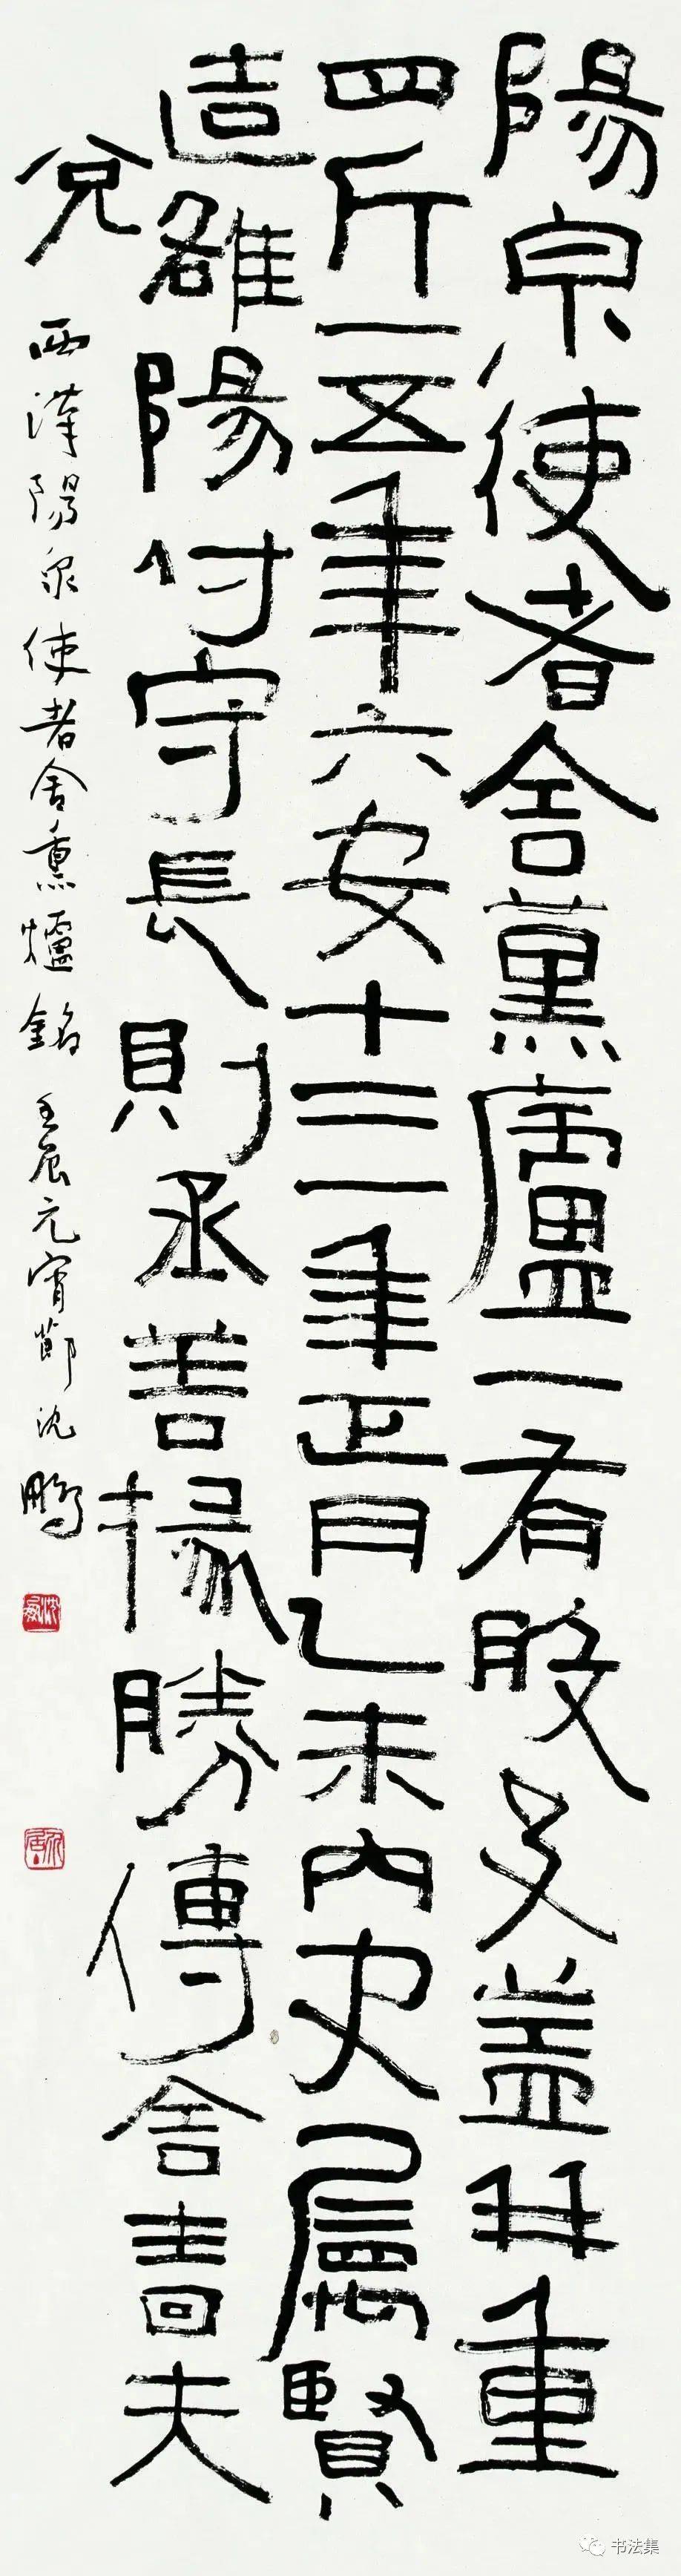 陽泉使者舍薰廬一有般及蓋并重
四斤一五年六安十三年正月乙未內史屬賢
造雒陽付守長則丞善掾勝傳舍嗇夫
兌
西漢陽泉使者舍熏爐銘 壬辰元宵節沈鵬
沈鵬
书法集